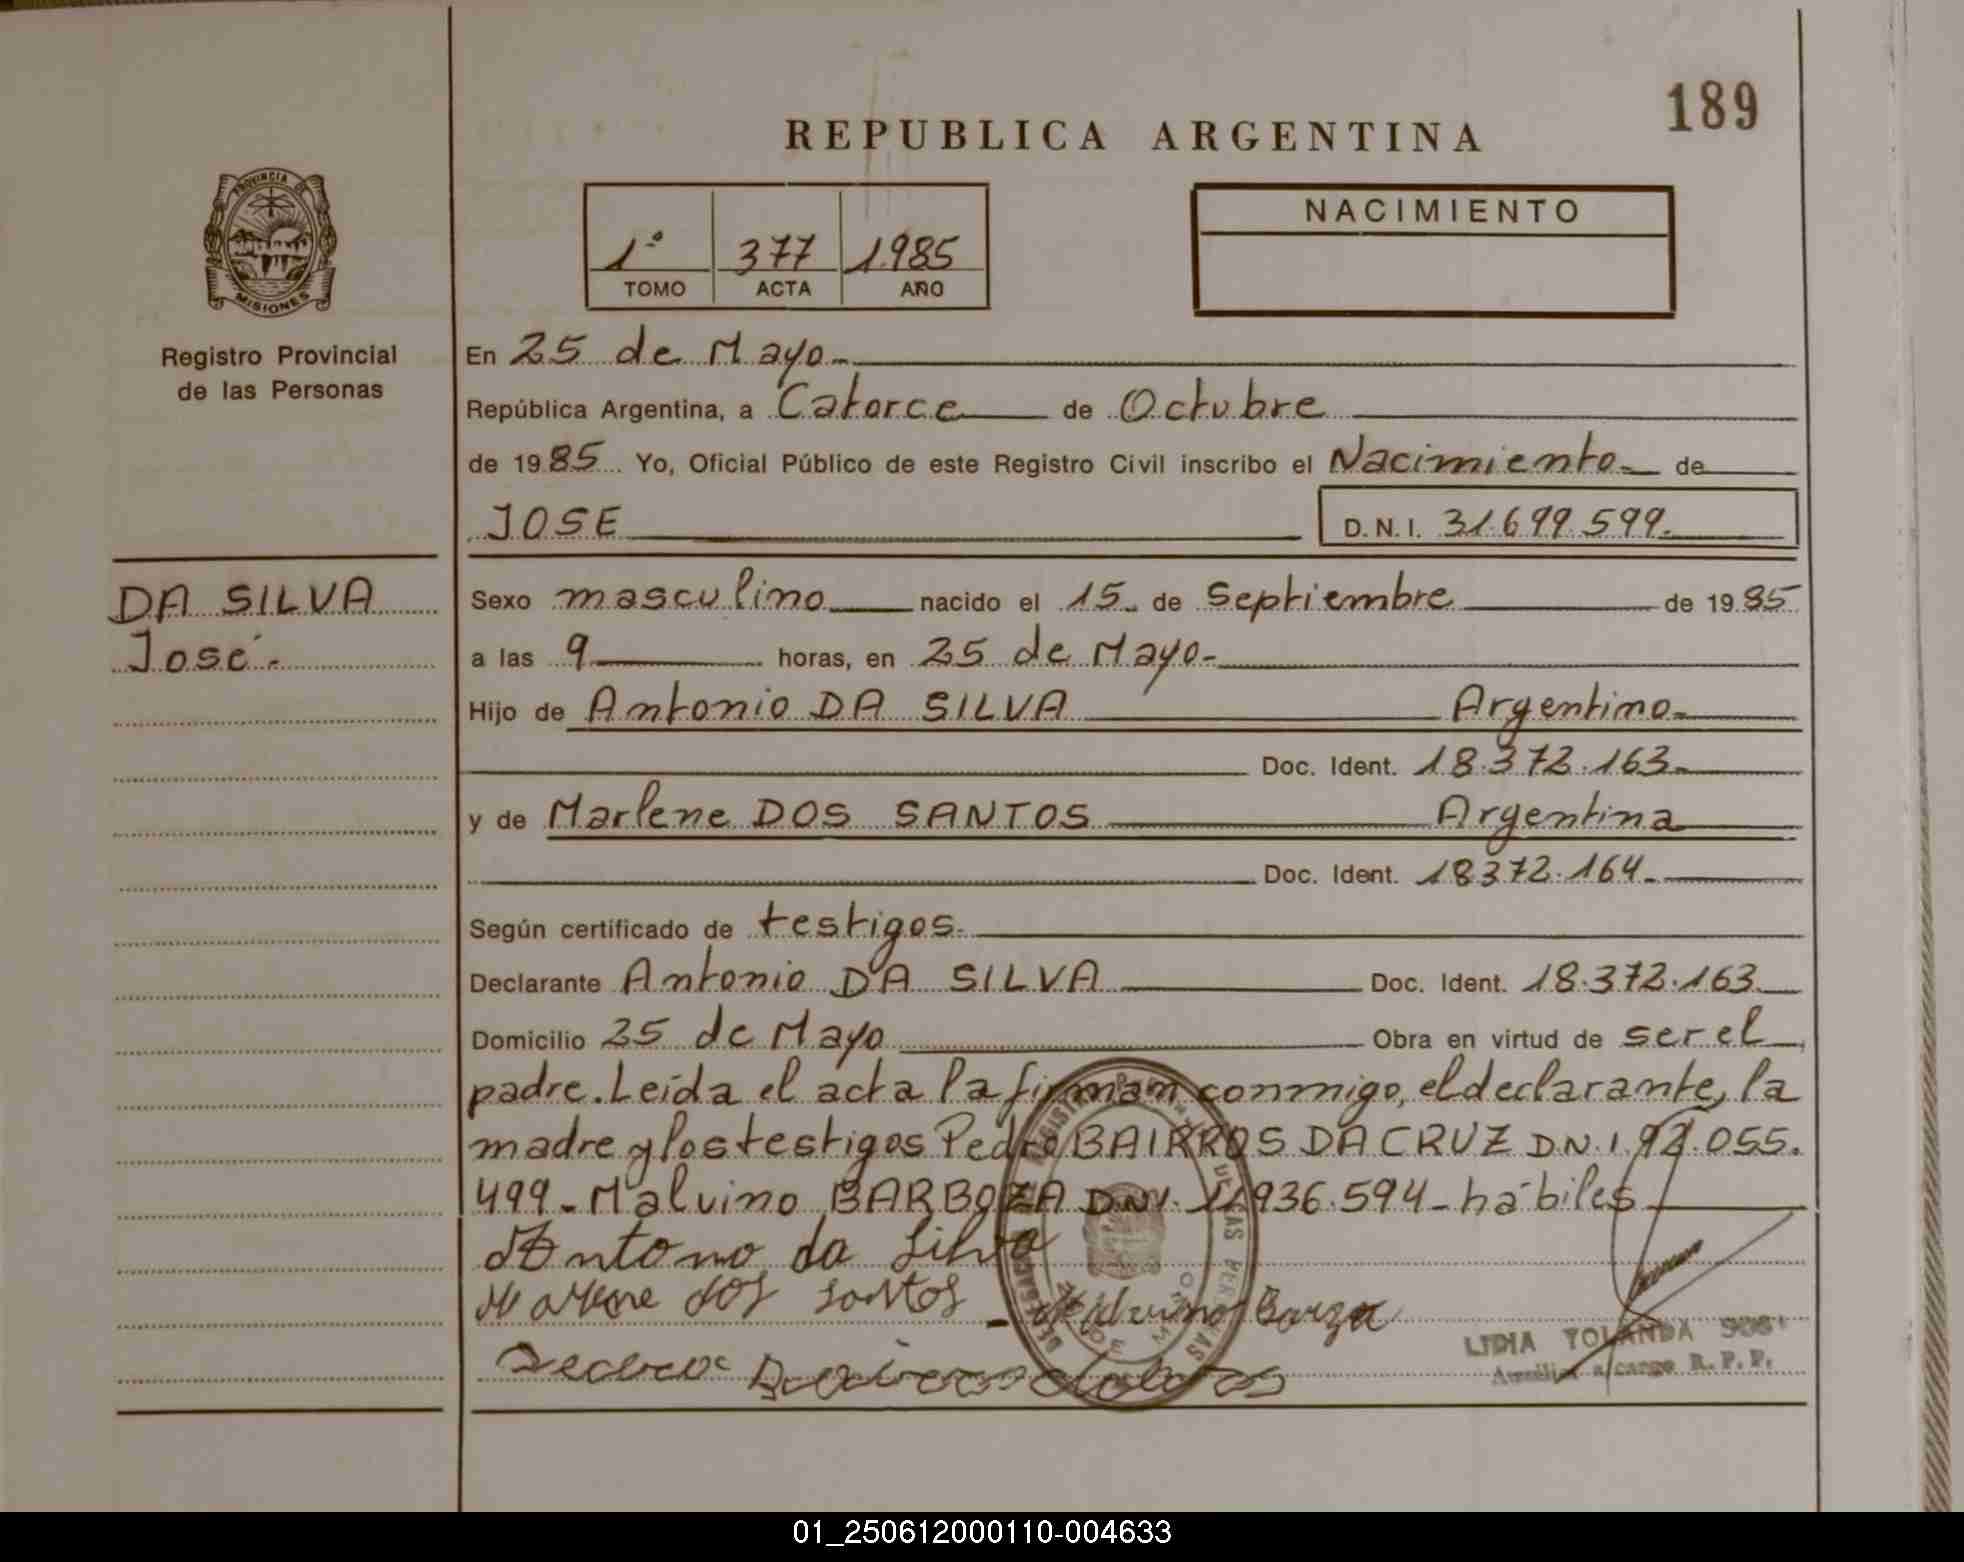 189
REPUBLICA ARGENTINA
PROVINCIA DE
MISIONES
Registro Provincial
de las Personas
1º 377 1.985
TOMO ACTA AÑO
NACIMIENTO
En 25 de Mayo.-
República Argentina, a Catorce de Octubre
de 1985 Yo, Oficial Público de este Registro Civil inscribo el Nacimiento.- de
JOSE D.N.I. 31.699.599.-
DA SILVA
José.-
Sexo masculino nacido el 15.- de Septiembre de 1985
a las 9 horas, en 25 de Mayo-
Hijo de Antonio DA SILVA Argentino-
Doc. Ident. 18.372.163-
y de Marlene DOS SANTOS Argentina
Doc. Ident. 18372.164.-
Según certificado de testigos.-
Declarante Antonio DA SILVA Doc. Ident. 18.372.163
Domicilio 25 de Mayo Obra en virtud de ser el
padre. Leída el acta la firman conmigo, el declarante, la
madre y los testigos Pedro BAIRROS DA CRUZ DN.I. 92.055.
499.- Malvino BARBOZA DNI. 11.936.594- hábiles
Antonio da Silva
Marlene dos santos
LIDIA YOLANDA
a cargo R. P. P.
01_250612000110-004633